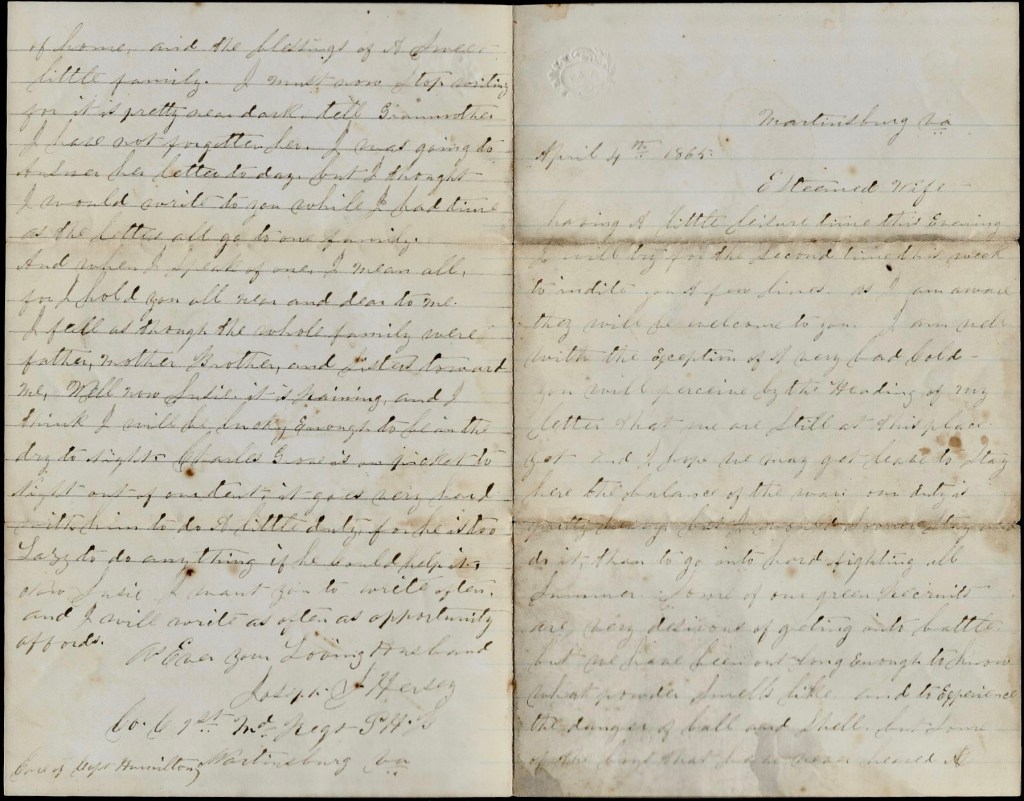 of home, and the blessings of A Sweet
little family. I must now stop writing
for it is pretty near dark. tell Granmother
I have not forgotten her. I was going to
answer her letter to day, but I thought
I would write to you while I had time
as the letters all go to one family.
And when I speak of one, I mean all,
for I hold you all near and dear to me.
I feel as though the whole family were
father, mother Brother, and Sisters toward
me, Well now Susie, it is raining, and I
think I will be lucky Enough to be on the
dry to night. Charles is on picket to
night out of our tent, it goes very hard
with him to do A little duty, for he is too
Lazy to do anything if he could help it.
Now Susie I want you to write often,
and I will write as often as opportunity
affords.
As Ever your Loving Husband
Joseph Hersey
Co. C 1st Md Regt P H B
Martinsburg va
Care of Capt Hamilton
Martinsburg va
April 4th 1865.
Esteemed Wife
having A little leisure time this Evening
I will try for the Second time this week
to indite A few lines as I am aware
they will be welcome to you. I am well
with the Exception of A very bad Cold
you will perceive by the Heading of my
letter that we are Still at this place
yet and I hope we may get leave to Stay
here the balance of the war. our duty is
pretty heavy but I would Stay and
do it, than to go into hard fighting all
Summer. Some of our green recruits
are very desirous of geting into battle
but we have been out long Enough to know
what powder Smells like and to Experience
the danger of ball and Shell. but Some
of the boys that have never heared A